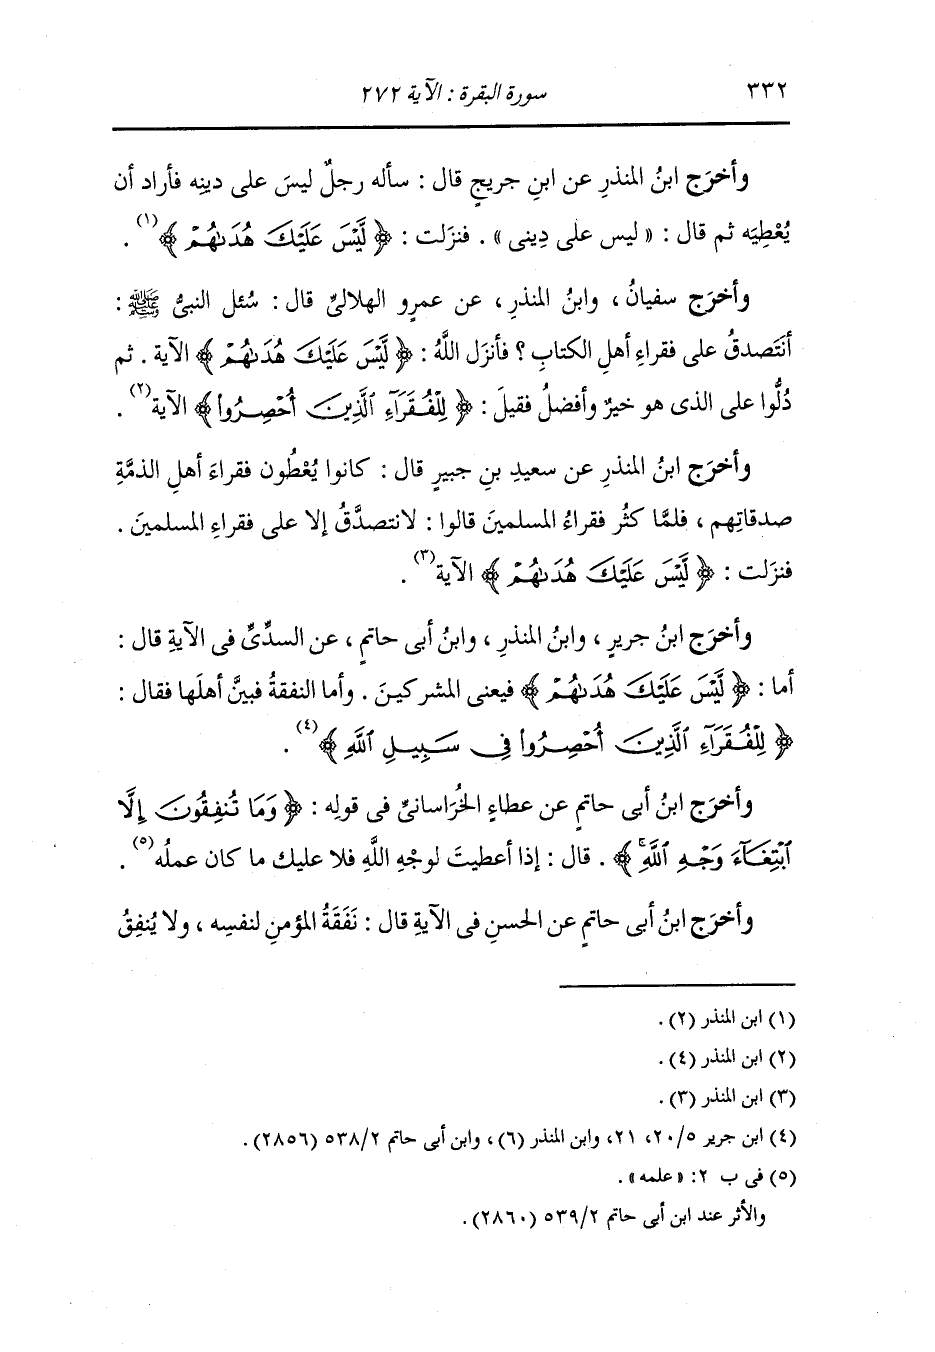 ٣٣٢ سورة البقرة : الآية ٢٧٢
وأخرَج ابنُ المنذرِ عن ابنِ جريجٍ قال : سأله رجلٌ ليسَ على دينِه فأراد أن
يُعْطِيَه ثم قال : « ليس على دِينى » . فنزَلت : ﴿ لَّيْسَ عَلَيْكَ هُدَىٰهُمْ ﴾(١) .
وأخرَج سفيانُ ، وابنُ المنذرِ ، عن عمرٍو الهلاليِّ قال : سُئل النبيُّ ﷺ :
أنَتَصدقُ على فقراءِ أهلِ الكتابِ ؟ فأنزَل اللَّهُ : ﴿ لَّيْسَ عَلَيْكَ هُدَىٰهُمْ ﴾ الآية . ثم
دُلُّوا على الذى هو خيرٌ وأفضلُ فقيلَ : ﴿ لِلْفُقَرَآءِ ٱلَّذِينَ أُحْصِرُوا۟ ﴾ الآية(٢) .
وأخرَج ابنُ المنذرِ عن سعيدِ بنِ جبيرٍ قال : كانوا يُعْطُون فقراءَ أهلِ الذمَّةِ
صدقاتِهم ، فلمَّا كثُر فقراءُ المسلمينَ قالوا : لانتصدَّقُ إلا على فقراءِ المسلمينَ .
فنزَلت : ﴿ لَّيْسَ عَلَيْكَ هُدَىٰهُمْ ﴾ الآية(٣) .
وأخرَج ابنُ جريرٍ ، وابنُ المنذرِ ، وابنُ أبى حاتمٍ ، عن السدِّيِّ فى الآيةِ قال :
أما : ﴿ لَّيْسَ عَلَيْكَ هُدَىٰهُمْ ﴾ فيعنى المشركينَ . وأما النفقةُ فبيَّن أهلَها فقال :
﴿ لِلْفُقَرَآءِ ٱلَّذِينَ أُحْصِرُوا۟ فِى سَبِيلِ ٱللَّهِ ﴾(٤) .
وأخرَج ابنُ أبى حاتمٍ عن عطاءٍ الخُرَاسانيِّ فى قولِه : ﴿ وَمَا تُنفِقُونَ إِلَّا
ٱبْتِغَآءَ وَجْهِ ٱللَّهِۚ ﴾ . قال : إذا أعطيتَ لوجْهِ اللَّهِ فلا عليك ما كان عملُه(٥) .
وأخرَج ابنُ أبى حاتمٍ عن الحسنِ فى الآيةِ قال : نَفَقَةُ المؤمنِ لنفسِه ، ولا يُنفِقُ
(١) ابن المنذر (٢) .
(٢) ابن المنذر (٤) .
(٣) ابن المنذر (٣) .
(٤) ابن جرير ٢٠/٥، ٢١، وابن المنذر (٦) ، وابن أبى حاتم ٥٣٨/٢ (٢٨٥٦) .
(٥) فى ب ٢: « علمه » .
والأثر عند ابن أبى حاتم ٥٣٩/٢ (٢٨٦٠) .